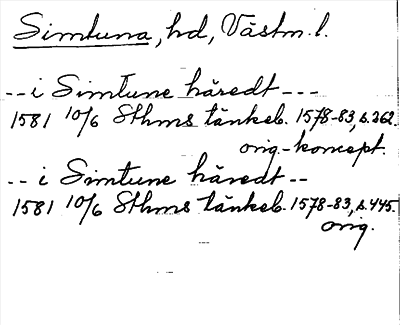 Simtuna, hd, Västm. l.
-- i Simtune häredt ---
1581 10/6 Sthms tänkeb. 1578-83, s. 262.
orig.-koncept.
-- i Simtune häredt --
1581 10/6 Sthms tänkeb. 1578-83, s. 445.
orig.